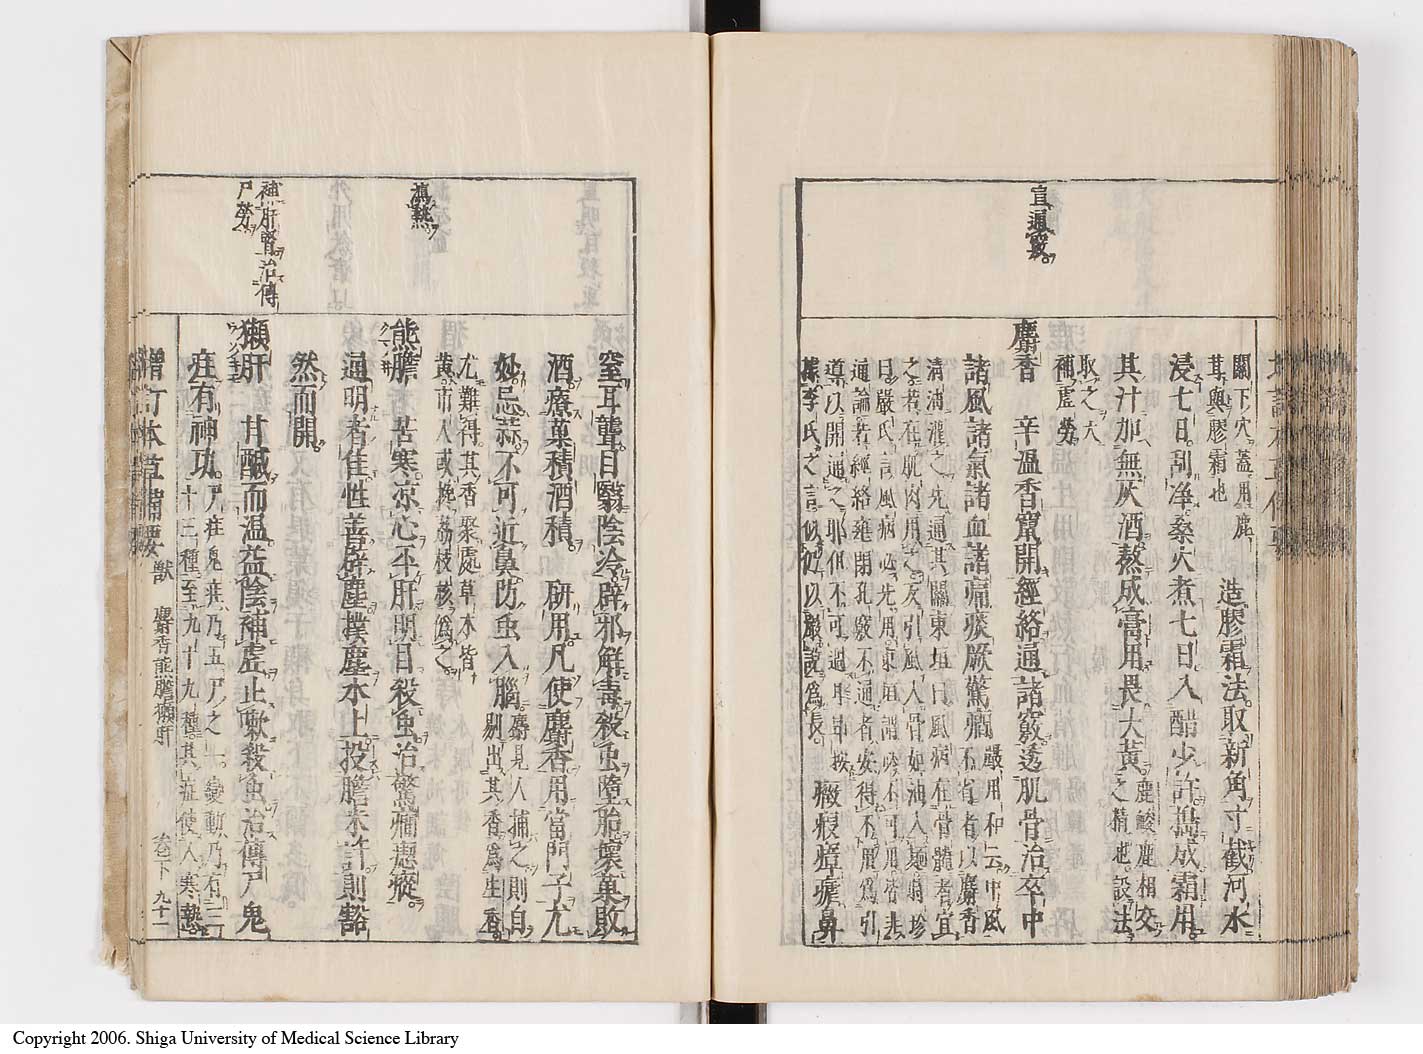 宣通竅
關下穴蓋用麃
茸與膠霜也
造膠霜法取新角寸截河水
浸七日刮淨桑火煮七日入醋少許搗成霜用
其汁加無灰酒熬成膏用畏大黃
鹿䤘鹿相交
之精也設法
取之大
補虛勞
麝香 辛溫香竄開經絡通諸竅透肌骨治卒中
諸風諸氣諸血諸痛痰厥驚癇
嚴用和云中風
不省者以麝香
清油灌之先通其關東垣曰風病在骨髓者宜
之若在肌肉用之反引風入骨如油入麵時珍
曰嚴氏言風病必先用東垣謂必不可用皆非
通論若經絡壅閉孔竅不通者安得不用爲引
導以開通之耶但不可過耳䒳按
據李氏之言似仍以嚴說爲長
癥瘕瘴瘧鼻
瀉熱
補肝腎治傳
尸勞
窒耳聾目翳陰冷辟邪解毒殺虫墮胎壞菓敗
酒療菓積酒積 研用凡使麝香用當門子尤
妙忌蒜不可近鼻防虫入腦
麝見人捕之則自
剔出其香爲生香
尤難得其香聚處草木皆
黃市人或攙荔枝核爲之
熊膽 苦寒凉心平肝明目殺虫治驚癇瘛瘲
通明者佳性善辟塵撲塵水上投膽米許則豁
然而開
獺肝 甘鹹而溫益陰補虛止嗽殺虫治傳尸鬼
疰有神功
尸疰鬼疰乃五尸之一變動乃有三
十三種至九十九種其症使人寒熱
增訂本草備要 獸 麝香熊膽獺肝 卷下 九十一